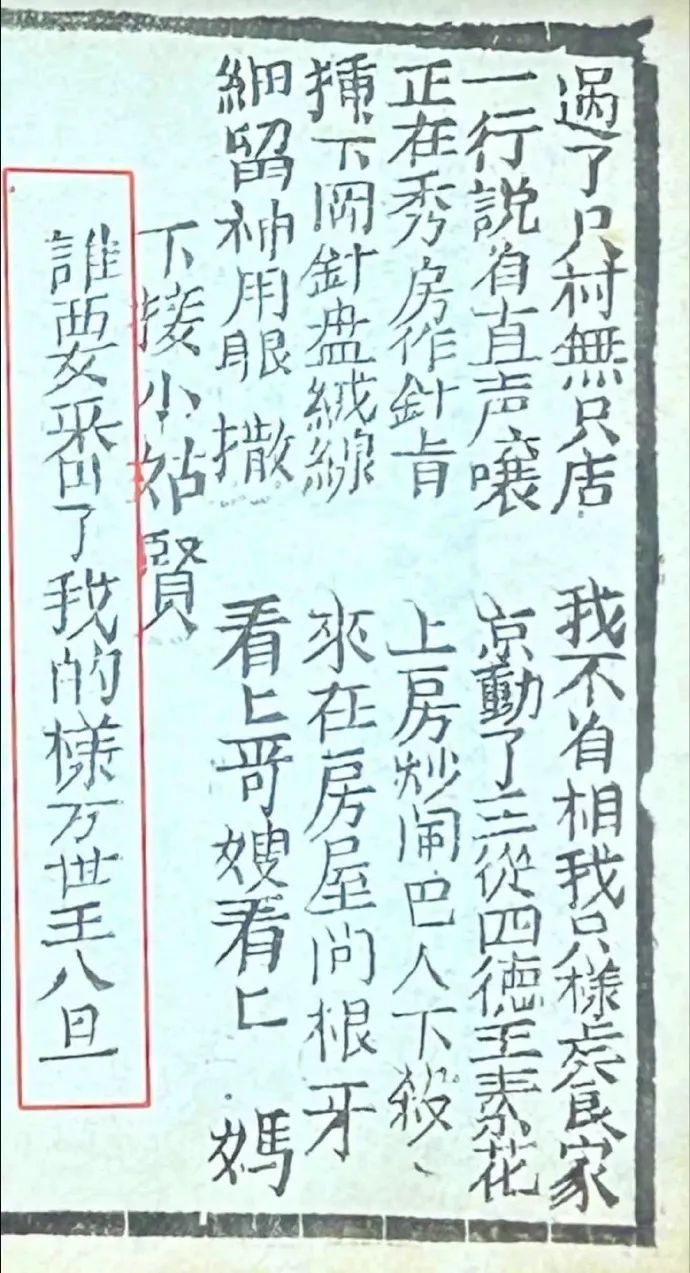 過了只村無只店 我不省相我只樣喪家
一行説省直声嚷 京動了三從四徳王素花
正在秀房作針肯 上房炒闹巴人下殺
揰下罔針盘絨線 來在房屋问根牙
細畄神用眼撒 看匕哥嫂看匕媽
下接小姑賢
誰要畨了我的樣万世王八旦